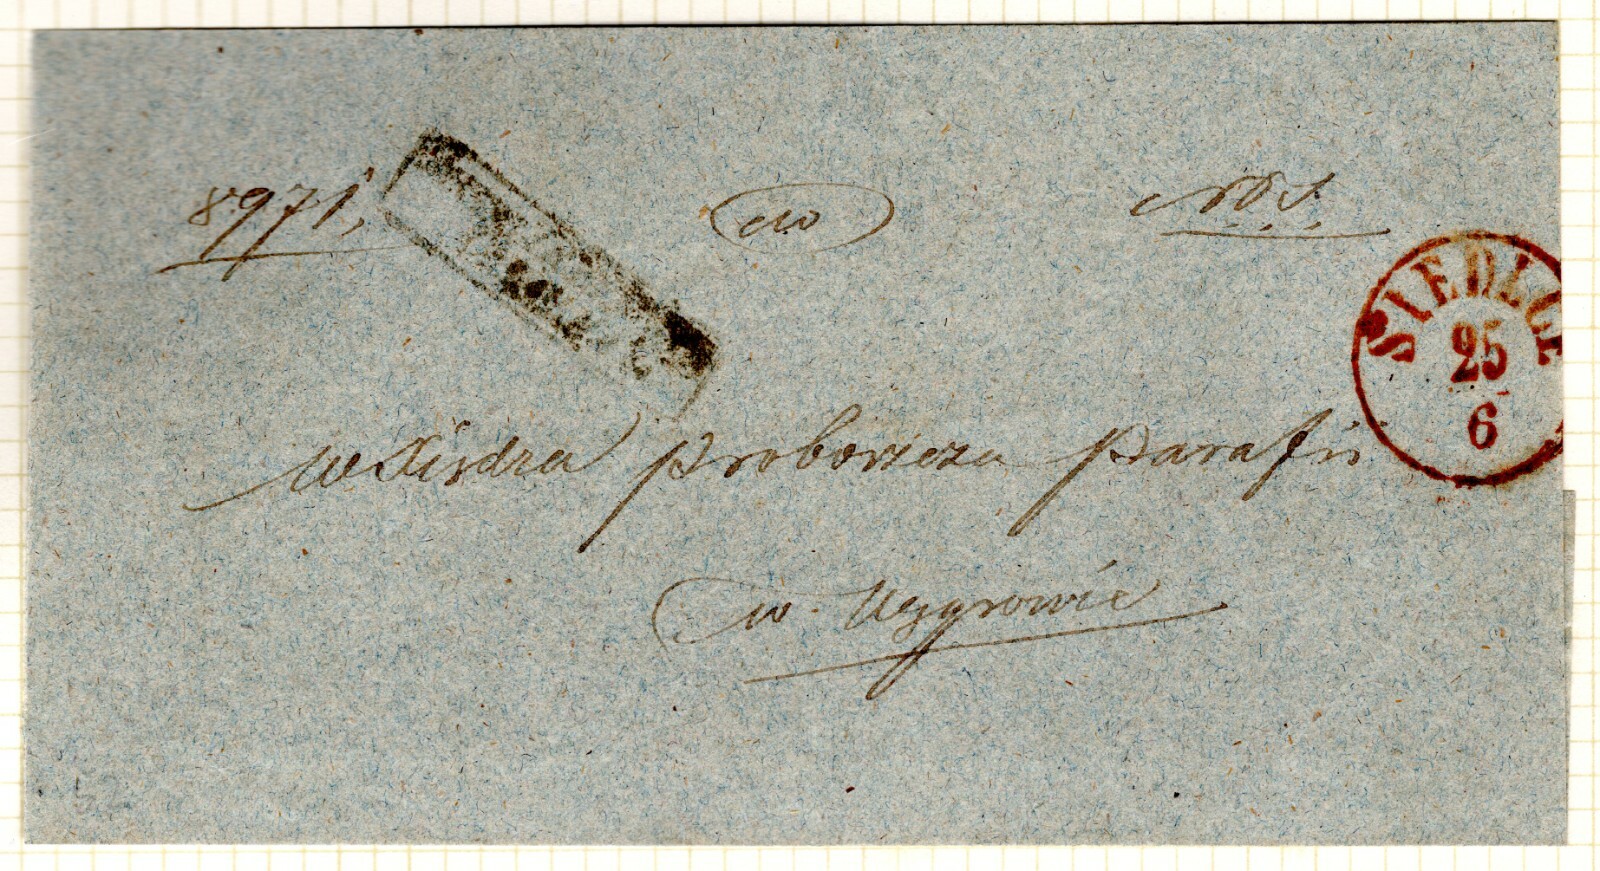 8971,
NDS.
SIEDLCE
25
6
WXiędza Proboszcza Parafii
w Węgrowie